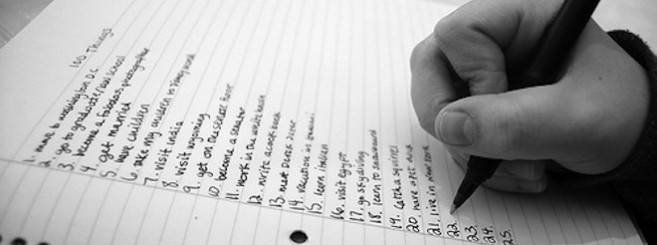 100 Things
1. move to washington D.C.
2. go to graduate/law school
3. become a fabulous photographer
4. get married
5. have children
6. take my children to disneyworld
7. visit India
8. visit wyoming
9. get on the senate floor
10. become a senator
11. work in the white house
12. write a cook book
13. meet Derek Jeter
14. vacation in
15. learn Italian
16. visit Egypt
17. go skydiving
18. learn to
19. catch a squirrel
20. have a pet
21. live in new york
22.
23.
24.
25.